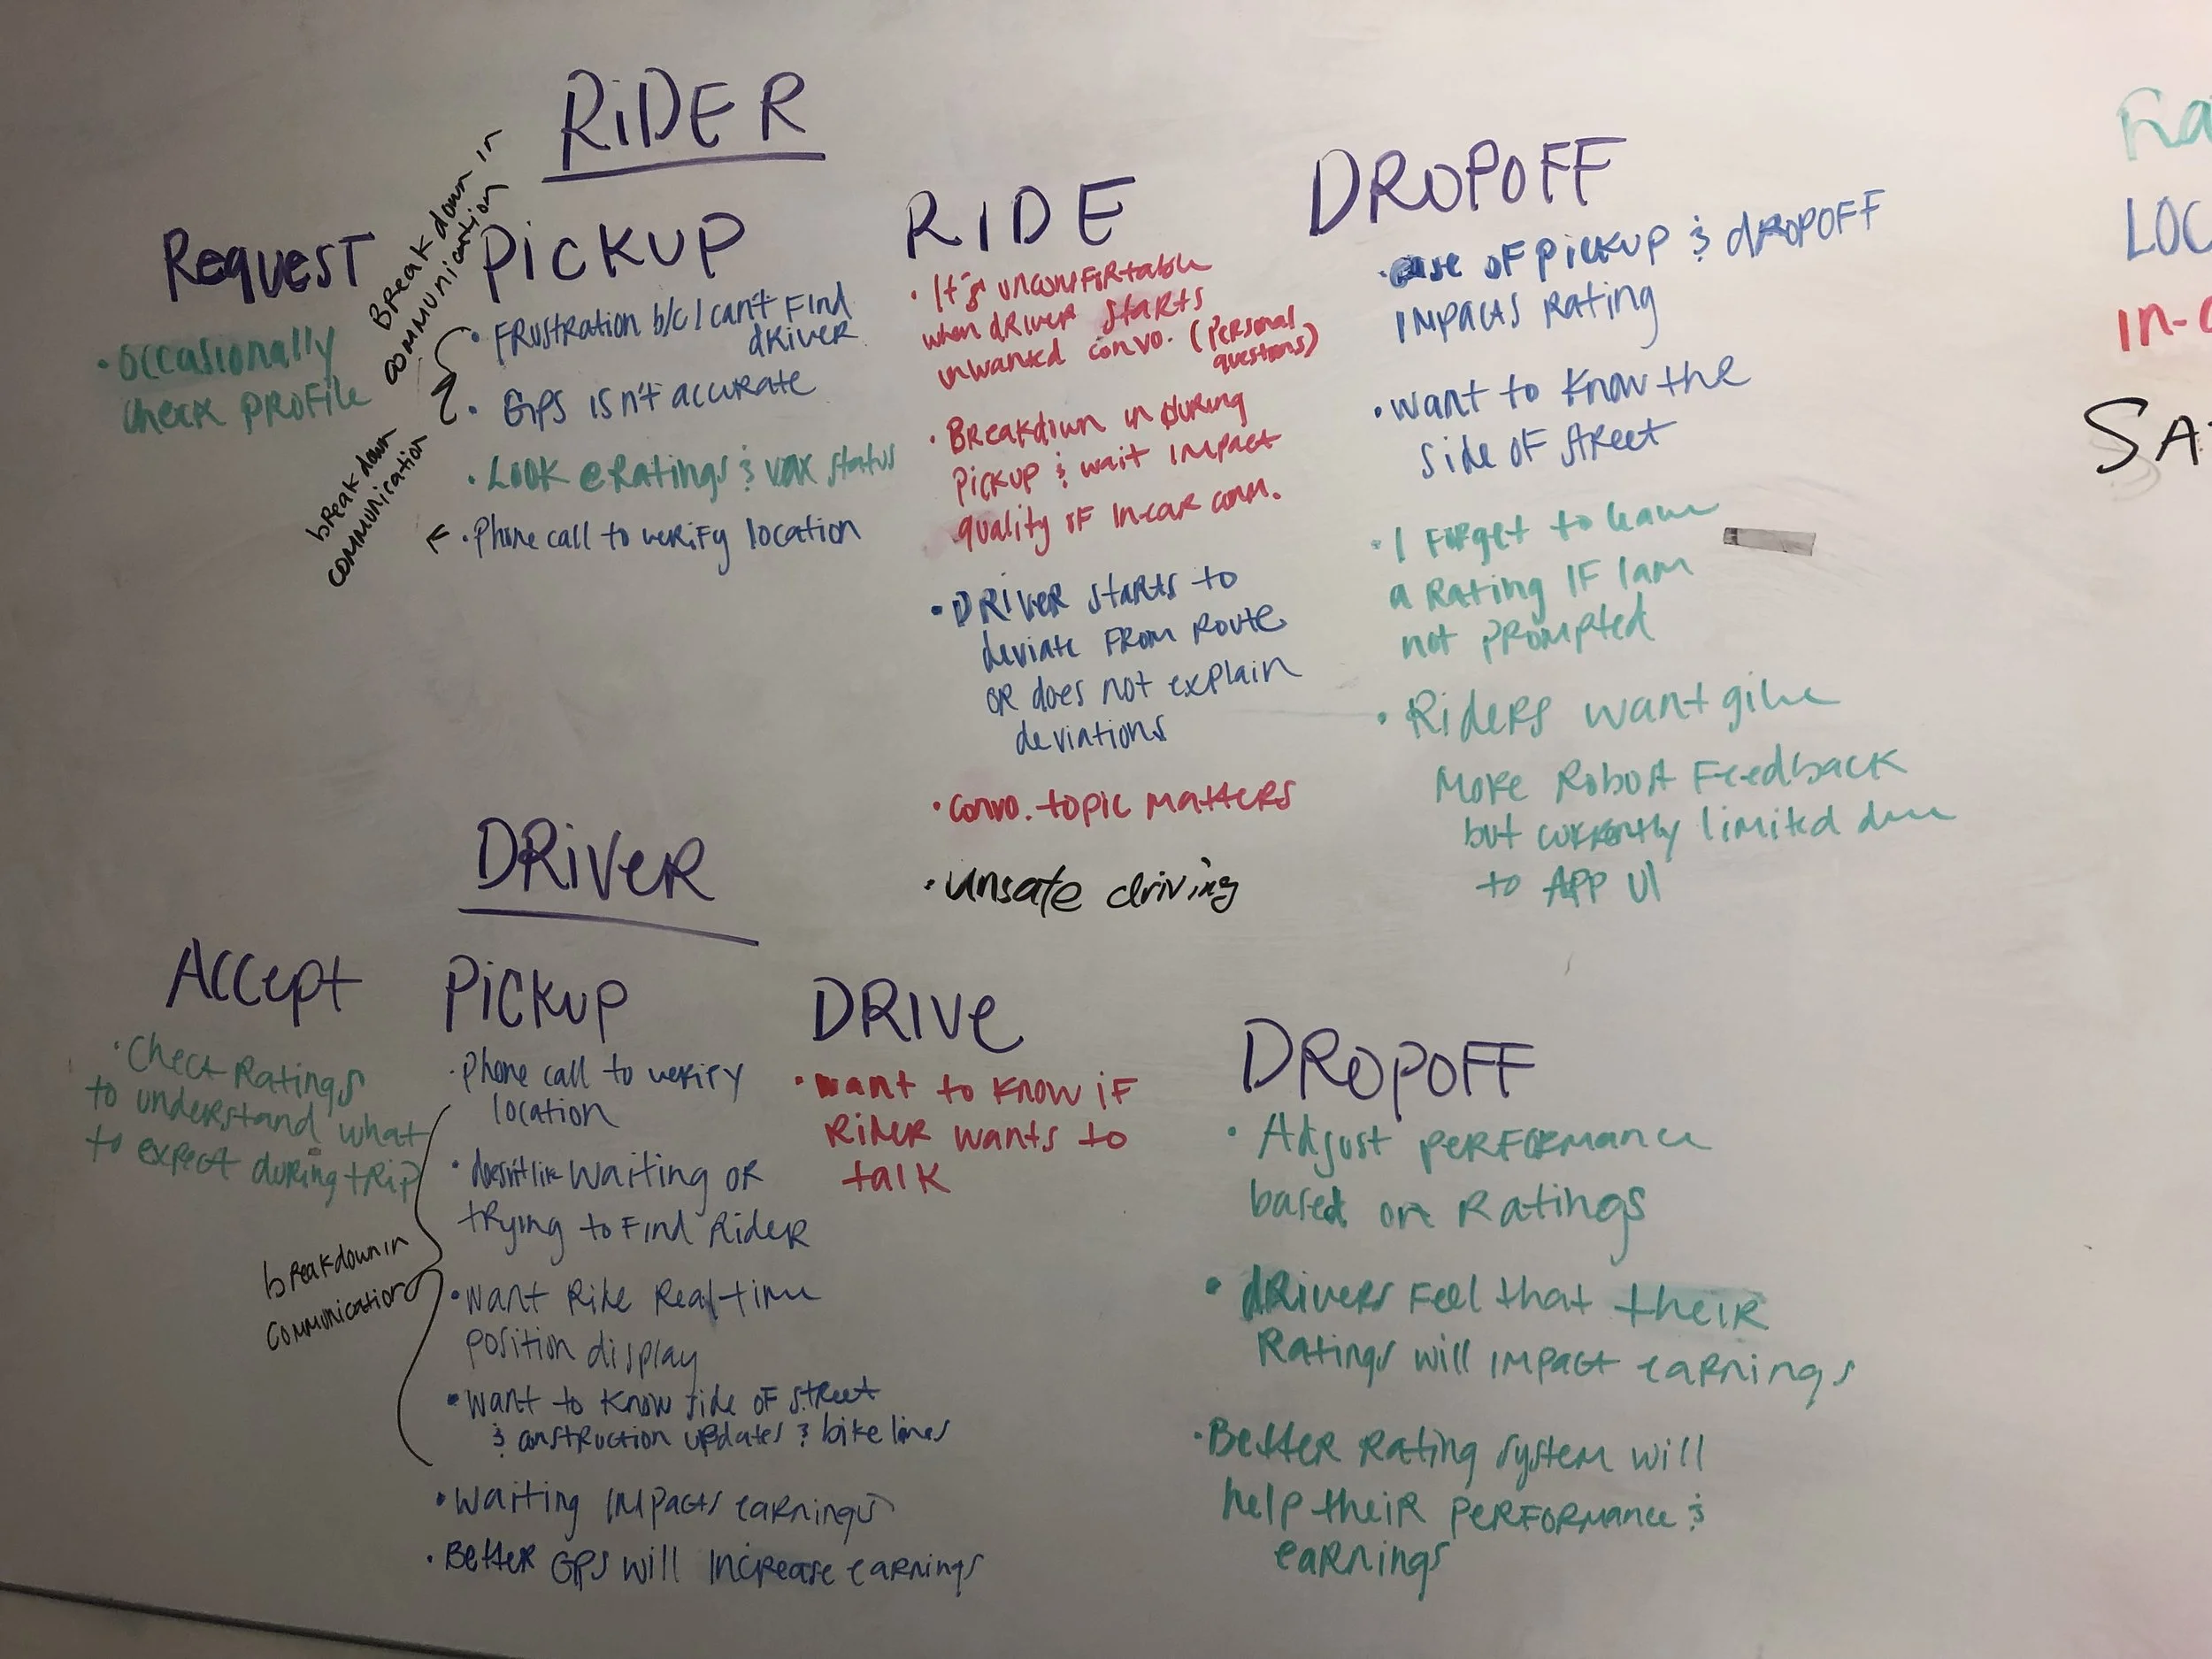 RiDER
Request
• occasionally
check profile
Breakdown in
communication
breakdown
communication
Pickup
• Frustration b/c I can't find
driver
• GPS isn't accurate
• Look @ Ratings & vax status
• Phone call to verify location
RIDE
• It's uncomfortable
when driver starts
unwanted convo. (personal
questions)
• Breakdown in during
pickup & wait impact
quality of in-car com.
• Driver starts to
deviate from route
or does not explain
deviations
• convo. topic matters
• unsafe driving
DROPOFF
• ease of pickup & dropoff
impacts rating
• want to know the
side of street
• I forget to leave
a rating if I am
not prompted
• Riders want give
more robust feedback
but currently limited due
to App UI
Ra
LOC
in-c
SA
DRiver
Accept
• Check Ratings
to understand what
to expect during trip
breakdown in
communication
Pickup
• Phone call to verify
location
• doesn't like waiting or
trying to find rider
• want Real-time
position display
• want to know side of street
& construction updates & bike lines
• Waiting impacts earnings
• Better GPS will increase earnings
DRIVE
• want to know if
Rider wants to
talk
DROPOFF
• Adjust performance
based on Ratings
• drivers feel that their
Ratings will impact earnings
• Better rating system will
help their performance &
earnings